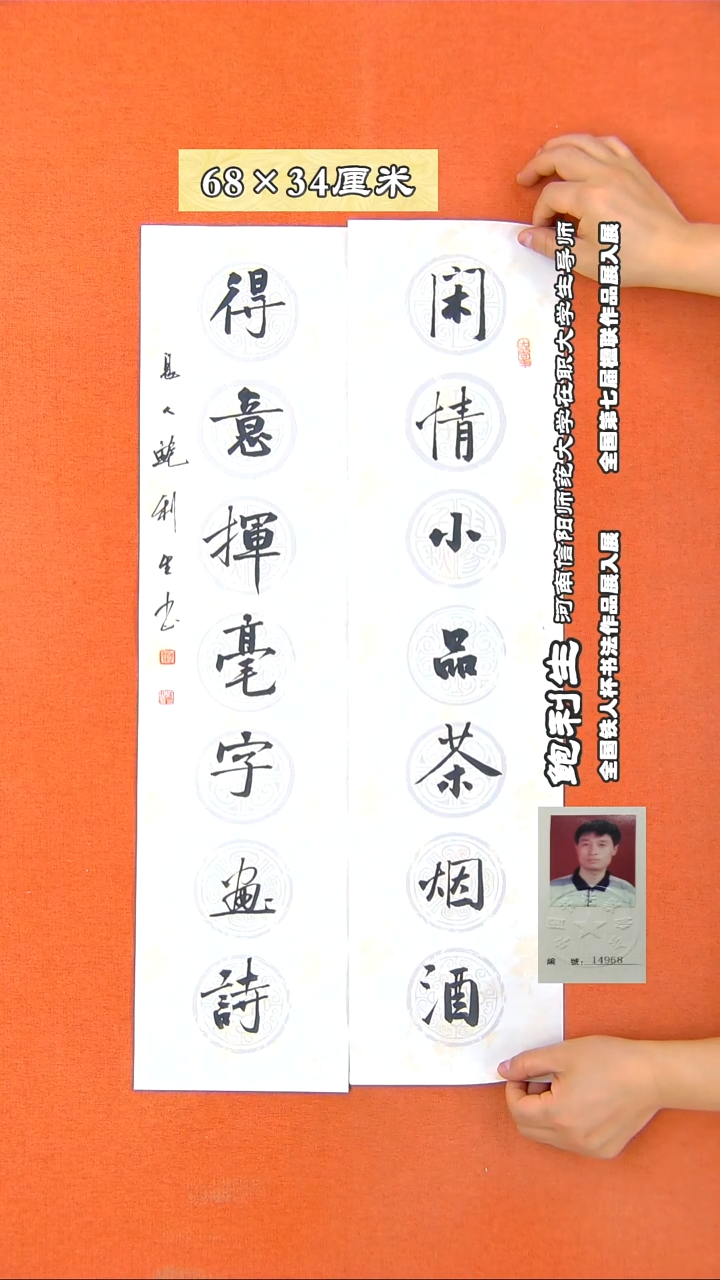 68×34厘米
闲情小品茶烟酒
得意揮毫字画詩
息人鲍利生书
鲍利生
河南信阳师范大学在职大学生导师
全国第七届楹联作品展入展
全国铁人杯书法作品展入展
編 號：14968